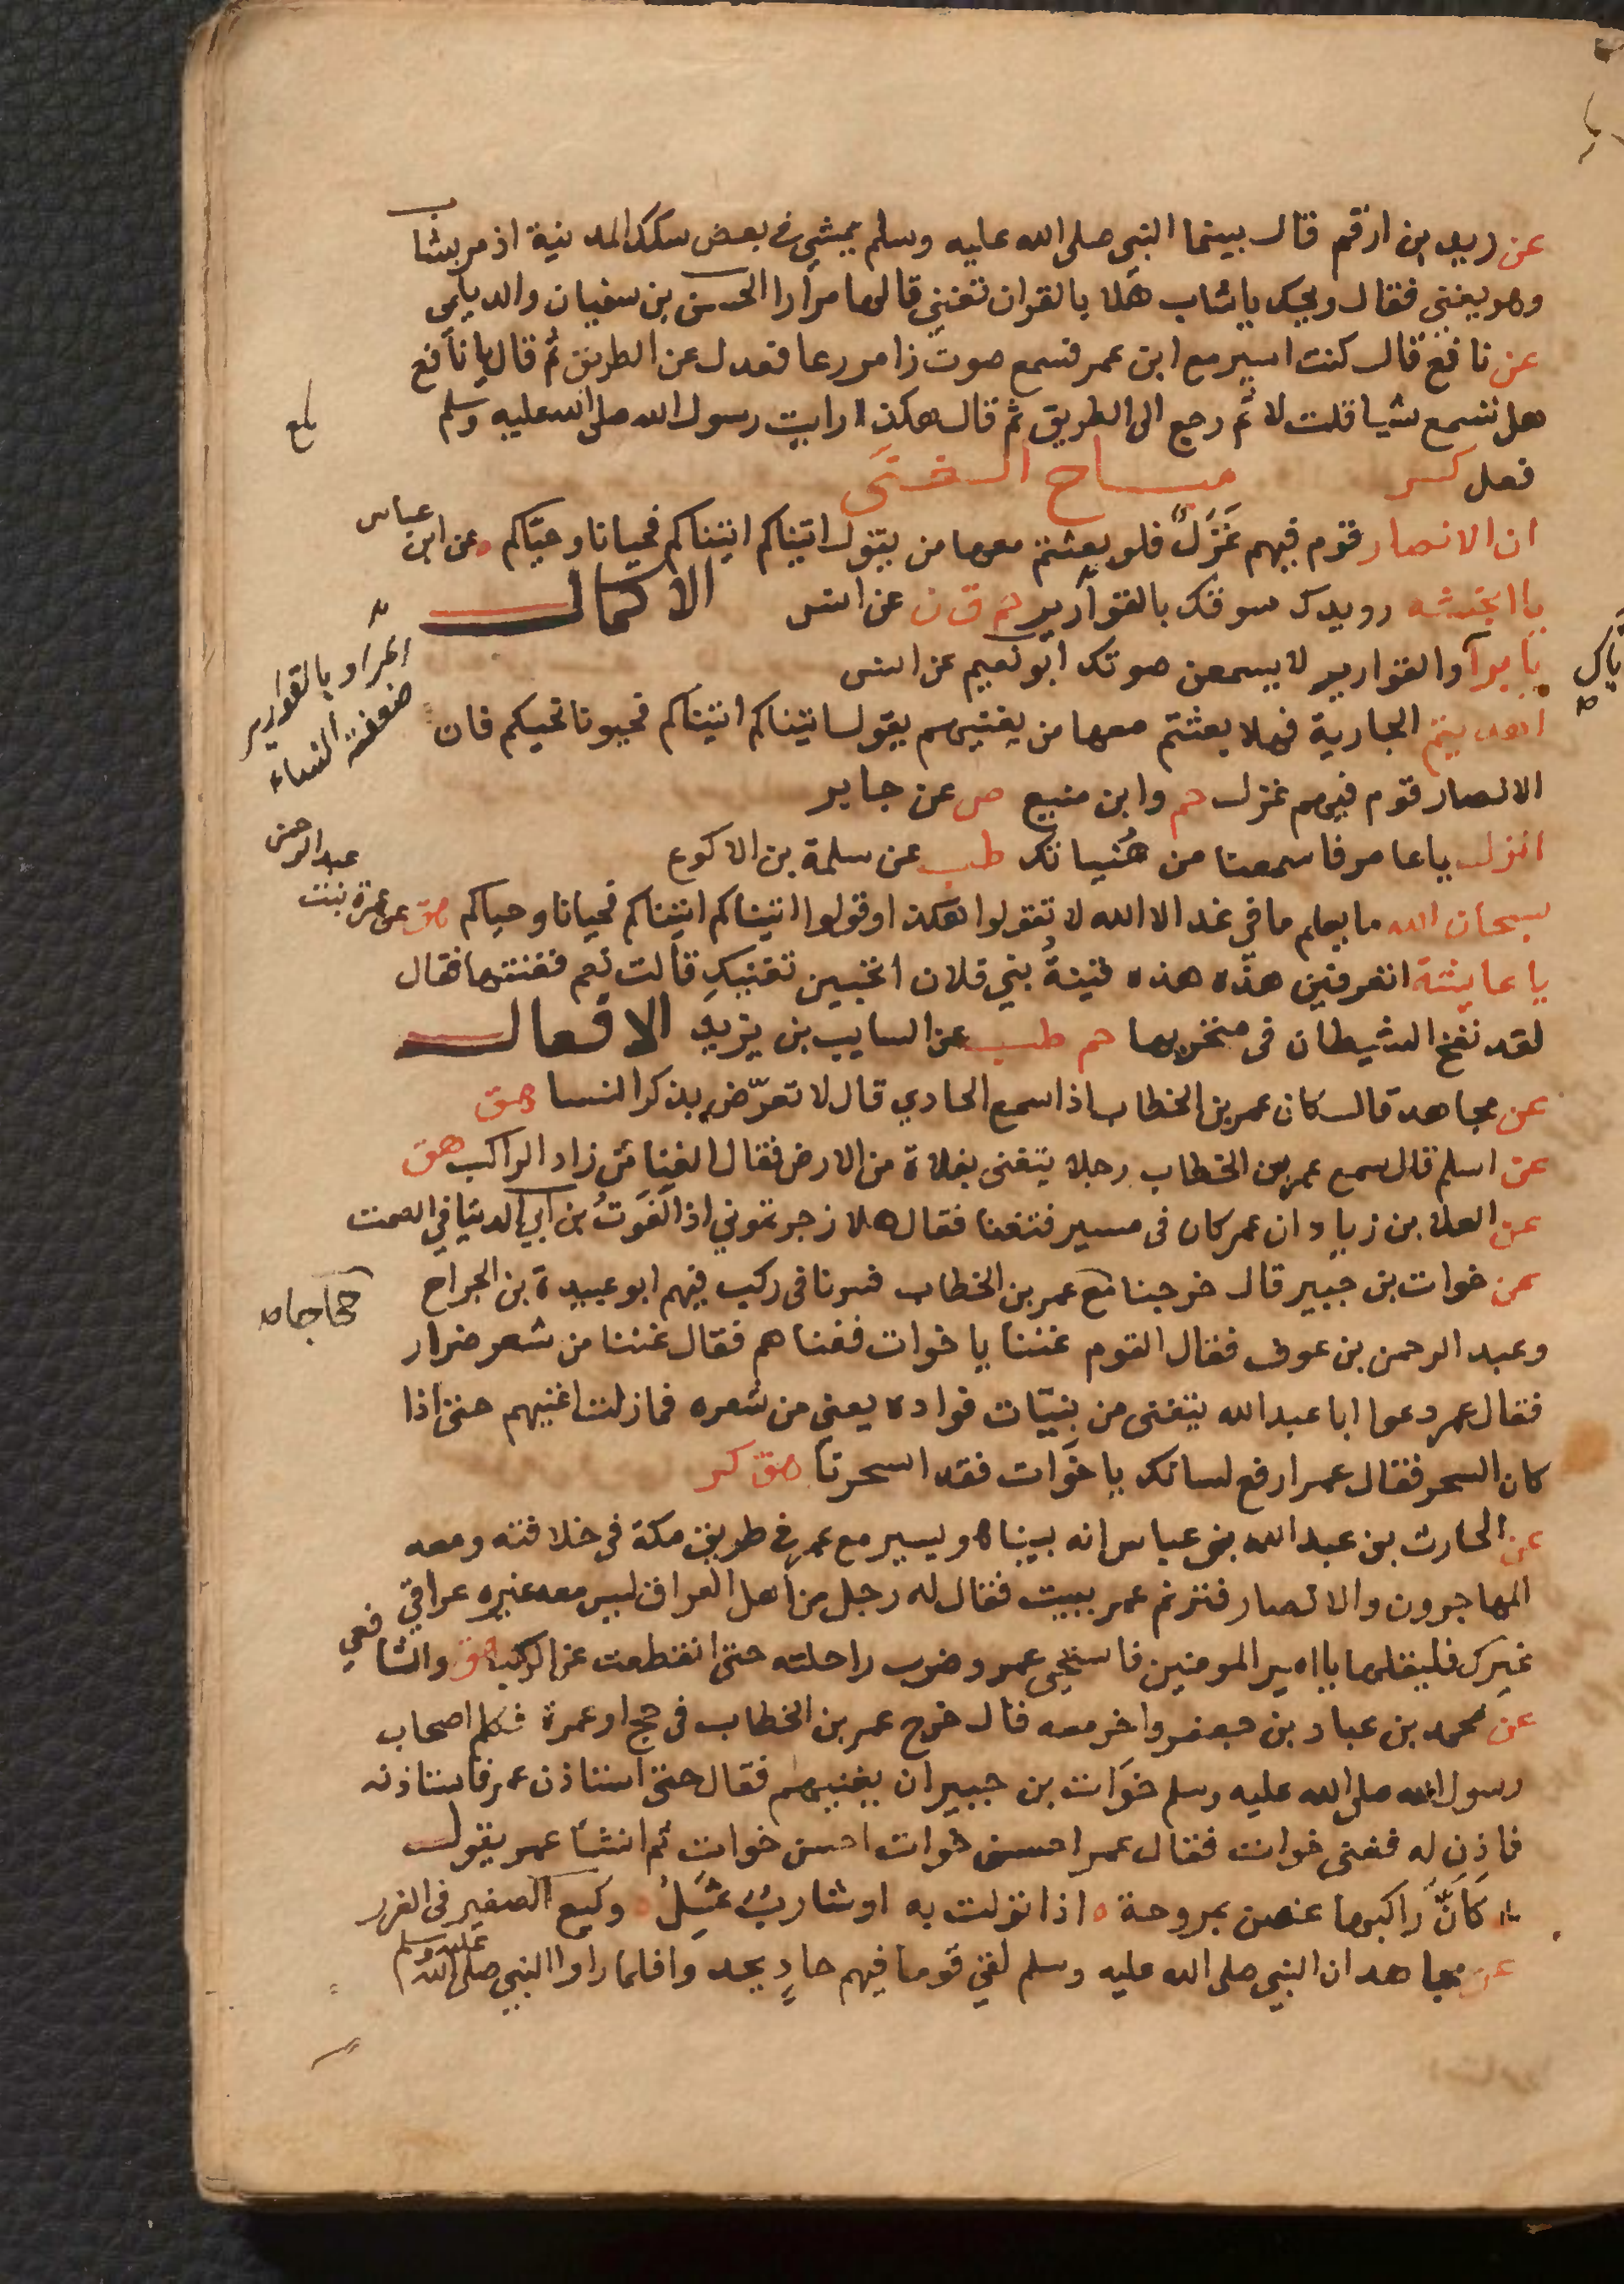 عن زيد بن ارقم قال بينما النبي صلى الله عليه وسلم يمشي في بعض سكك المدينة اذ مر بشاب
وهو يغني فقال ويحك يا شاب هلا بالقران تغني قالها مرارا الحسن بن سفيان والديلمي
عن نافع قال كنت اسير مع ابن عمر فسمع صوت زامر رعا فعدل عن الطريق ثم قال يا نافع
هل تسمع شيا قلت لا ثم رجع الى الطريق ثم قال هكذا رايت رسول الله صلى الله عليه وسلم
فعل كر مباح الغنى
ان الانصار قوم فيهم غَزَلٌ فلو بعثتم معها من يقول اتيناكم اتيناكم فحيانا وحيّاكم ه عن ابن عباس
يا انجشه رويدك سوقك بالقوارير حم ق ن عن انس الاكمال
المراد بالقوارير ضعفة النساء
يا برآ والقوارير لا يسمعن صوتك ابو نعيم عن انس
اهديتم الجارية فهلا بعثتم معها من يغنيهم يقول اتيناكم اتيناكم فحيونا نحيكم فان
الانصار قوم فيهم غزل حم وابن منيع ص عن جابر
انزل يا عامر فاسمعنا من هُنياتك طب عن سلمة بن الاكوع
سبحان الله ما يعلم ما في غد الا الله لا تقولوا هكذا وقولوا اتيناكم اتيناكم فحيانا وحياكم هق عن عمرة بنت عبد الرحمن
يا عايشة اتعرفين هذه هذه قينةُ بني فلان اتحبين تغنيكِ قالت نعم فغنتها فقال
لقد نفخ الشيطان في منخريها حم طب عن السايب بن يزيد الافعال
عن مجاهد قال كان عمر بن الخطاب اذا سمع الحادي قال لا تعرّض بذكر النسا هق
عن اسلم قال سمع عمر بن الخطاب رجلا يتغنى بفلاة من الارض فقال الغنا من زاد الراكب هق
عن العلا بن زياد ان عمر كان في مسير فتغنا فقال هلا زجرتموني اذا لغوتُ ابن ابي الدنيا في الصمت
عن خوات بن جبير قال خرجنا مع عمر بن الخطاب فسرنا في ركب فيهم ابو عبيدة بن الجراح
حجاجا صح
وعبد الرحمن بن عوف فقال القوم غننا يا خوات فغناهم فقال غننا من شعر ضرار
فقال عمر دعوا ابا عبد الله يتغنى من بنيّات فواده يعني من شعره فما زلت اغنيهم حتى اذا
كان السحر فقال عمر ارفع لسانك يا خوّات فقد اسحرنا هق كر
عن الحارث بن عبد الله بن عباس انه بينا هو يسير مع عمر في طريق مكة في خلافته ومعه
المهاجرون والانصار فترنم عمر ببيت فقال له رجل من اهل العراق ليس معه غيره عراقي
غيرك فليقلها يا امير المومنين فاستحيى عمر وضرب راحلته حتى انقطعت عن الركب هق والشافعي
عن محمد بن عباد بن جعفر واخر معه قال خرج عمر بن الخطاب في حج او عمرة فكلم اصحاب
رسول الله صلى الله عليه وسلم خوّات بن جبير ان يغنيهم فقال حتى استاذن عمر فاستاذنه
فاذن له فغنى خوات فقال عمر احسن خوات احسن خوات ثم انشا عمر يقول
كانّ راكبها غصن بمروحة ه اذا نزلت به او شاربٌ ثَمِلُ ه وكيع الصغير في الغرر
عن مجاهد ان النبي صلى الله عليه وسلم لقي قوما فيهم حادٍ يحدوا فلما راوا النبي صلى الله عليه وسلم